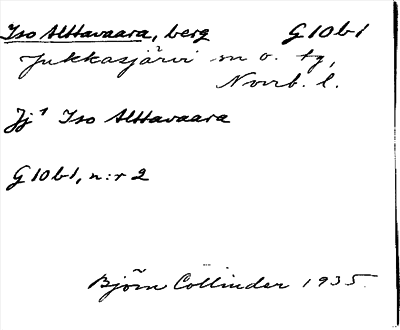 Iso Alttavaara, berg G10b1
Jukkasjärvi sn o. tg,
Norrb. l.
Jj¹ Iso Alttavaara
G10b1, n:r 2
Björn Collinder 1935.